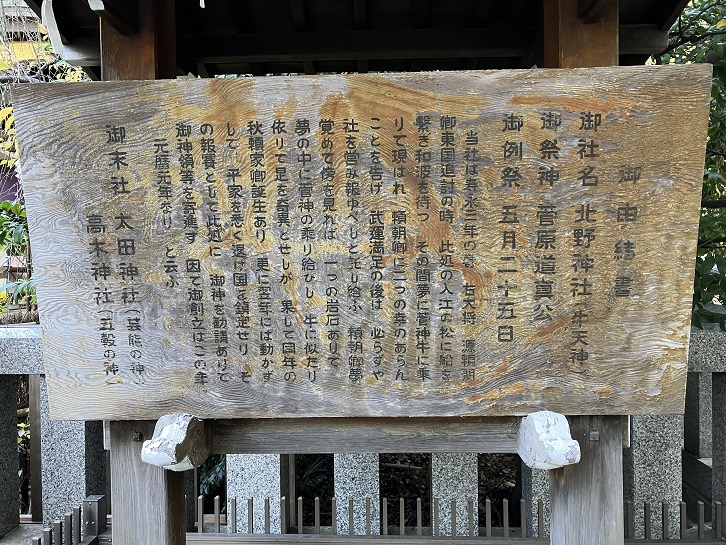 御由緒書
御社名 北野神社(牛天神)
御祭神 菅原道真公
御例祭 五月二十五日
当社は寿永三年の 右大将 源頼朝
卿東国追討の時 此処の入江の松に船を
繋き和波を待つ その間夢に菅神牛に乗
りて現はれ 頼朝卿に二つの幸のあらん
ことを告げ 武運満足の後は 必らずや
社を営み報ゆべしと託し給ふ 頼朝卿夢
覚めて傍を見れば 一つの岩石ありて
夢の中に菅神の乗り給ひし 牛に似たり
依りて是を奇異とせしが 果して同年の
秋頼家卿誕生あり 更に翌年には動かず
して 平家を悉く退け国を鎮定せり そ
の報賽として此処に 御神を勧請ありて
御神領等を寄進す 因て御創立はこの年
元暦元年なり と云ふ
御末社 太田神社(芸能の神)
高木神社(五穀の神)